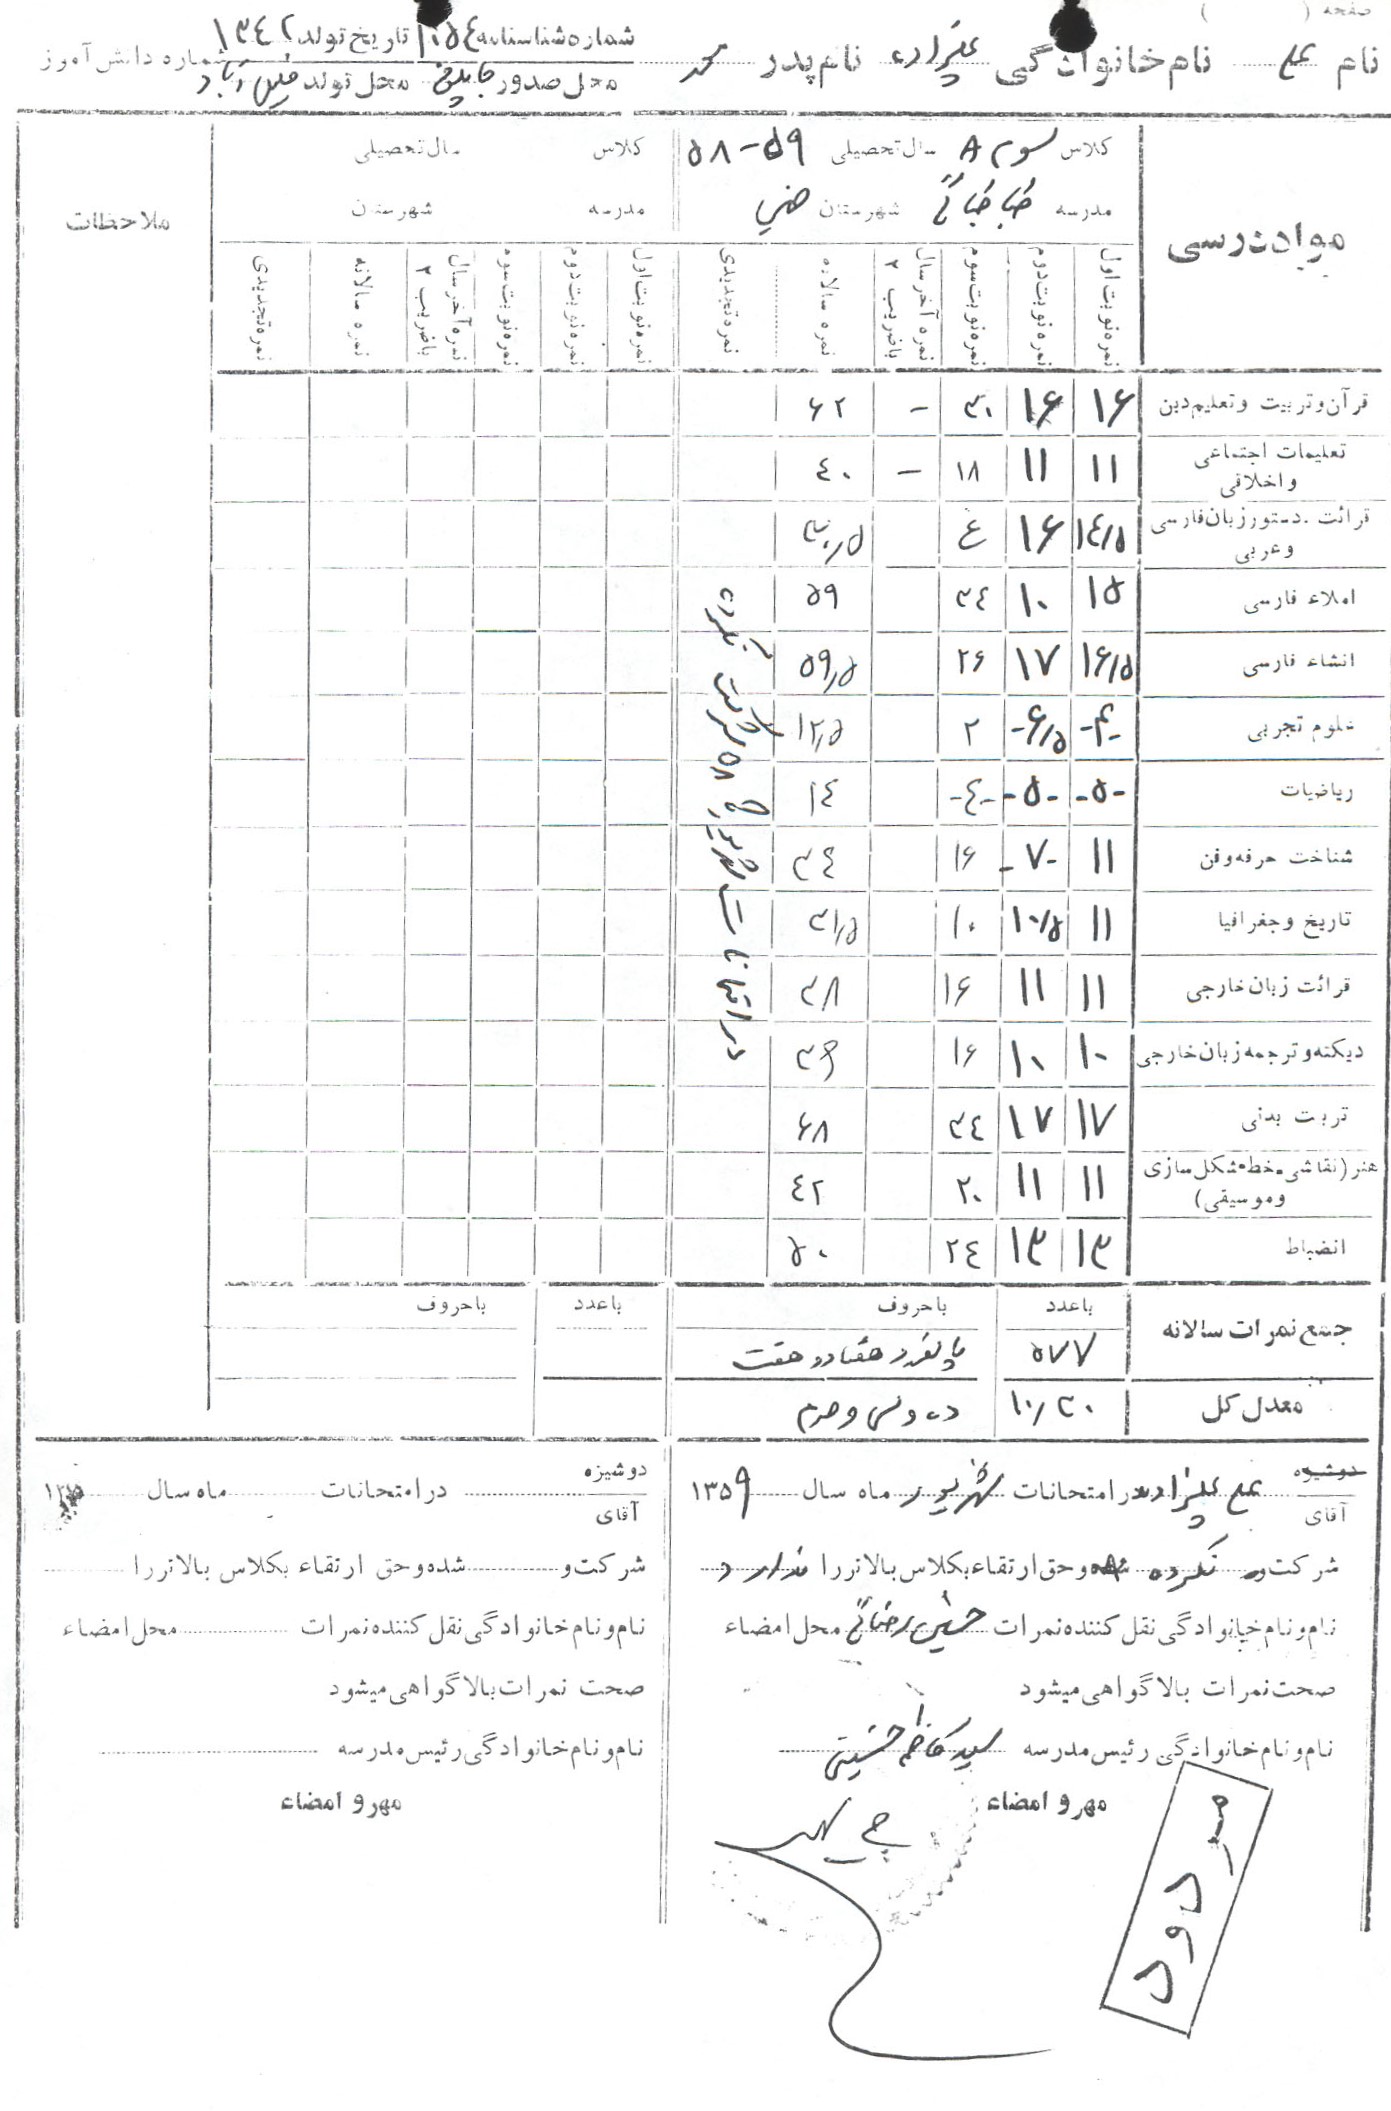 صفحه ( )
نام علی نام خانوادگی علیزاده نام پدر محمد شماره شناسنامه ۱۰۵۴ تاریخ تولد ۱۳۴۲ شماره دانش آموز
محل صدور جاپلق محل تولد
مواد درسی کلاس سوم A سال تحصیلی ۵۹-۵۸ کلاس سال تحصیلی ملاحظات
مدرسه طباطبائی شهرستان خمین مدرسه شهرستان
نمره نوبت اول نمره نوبت دوم نمره نوبت سوم نمره آخر سال با ضریب ۲ نمره سالانه نمره تجدیدی نمره نوبت اول نمره نوبت دوم نمره نوبت سوم نمره آخر سال با ضریب ۲ نمره سالانه نمره تجدیدی
قرآن و تربیت و تعلیم دین ۱۶ ۱۶ ۳۰ - ۶۲
تعلیمات اجتماعی و اخلاقی ۱۱ ۱۱ ۱۸ - ۴۰
قرائت . دستور زبان فارسی و عربی ۱۴/۵ ۱۶ ۳۰/۵
املاء فارسی ۱۵ ۱۰ ۳۴ ۵۹
انشاء فارسی ۱۶/۵ ۱۷ ۲۶ ۵۹/۵
علوم تجربی -۴- -۶/۵ ۲ ۱۲/۵
ریاضیات -۵- -۵- -۴- ۱۴
شناخت حرفه و فن ۱۱ -۷- ۱۶ ۳۴
تاریخ و جغرافیا ۱۱ ۱۰/۵ ۱۰ ۳۱/۵
قرائت زبان خارجی ۱۱ ۱۱ ۱۶ ۳۸
دیکته و ترجمه زبان خارجی ۱۰ ۱۰ ۱۶ ۳۶
تربت بدنی ۱۷ ۱۷ ۳۴ ۶۸
هنر (نقاشی . خط . شکل سازی و موسیقی) ۱۱ ۱۱ ۲۰ ۴۲
انضباط ۱۳ ۱۳ ۲۴ ۵۰
در امتحانات شهریور ۵۸ شرکت نکرده
باعدد باحروف باعدد باحروف
جمع نمرات سالانه ۵۷۷ پانصد و هفتاد و هفت
معدل کل ۱۰/۳۰ ده و سی صدم
دوشیزه
آقای علی علیزاده در امتحانات شهریور ماه سال ۱۳۵۹
شرکت و نکرده شده و حق ارتقاء بکلاس بالاتر را ندارد
نام و نام خانوادگی نقل کننده نمرات حسین رضائی محل امضاء
صحت نمرات بالا گواهی میشود
نام و نام خانوادگی رئیس مدرسه سید کاظم حسینی
مهر و امضاء
مردود
دوشیزه
آقای در امتحانات ماه سال ۱۳۵
شرکت و شده و حق ارتقاء بکلاس بالاتر را
نام و نام خانوادگی نقل کننده نمرات محل امضاء
صحت نمرات بالا گواهی میشود
نام و نام خانوادگی رئیس مدرسه
مهر و امضاء